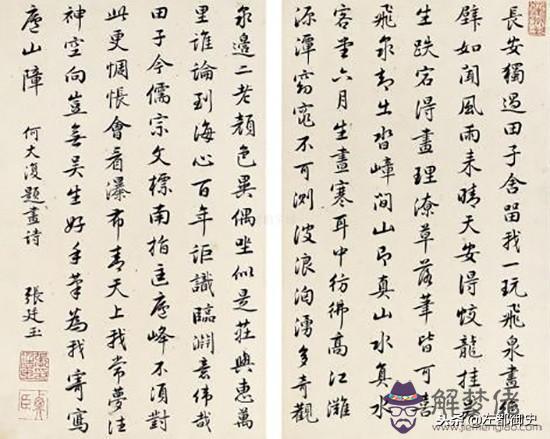 長安獨過田子舍留我一玩飛泉畫絕
壁如聞風雨来晴天安得蛟龍挂吳
生跌宕得畫理潦草落筆皆可喜
飛泉却出沓嶂間山即真山水真水
客堂六月生晝寒耳中彷彿高江灘
源潭窈窕不可測波浪洶湧多奇觀
泉邊二老顏色異偶坐似是莊與惠萬
里誰論到海心百年詎識臨淵意偉哉
田子今儒宗文標南指匡廬峰不須對
此更惆悵會看瀑布青天上我常夢往
神空向豈無吳生好手筆為我寄寫
廬山障 何大復題畫詩 張廷玉
解夢佬
头条 @左都御史